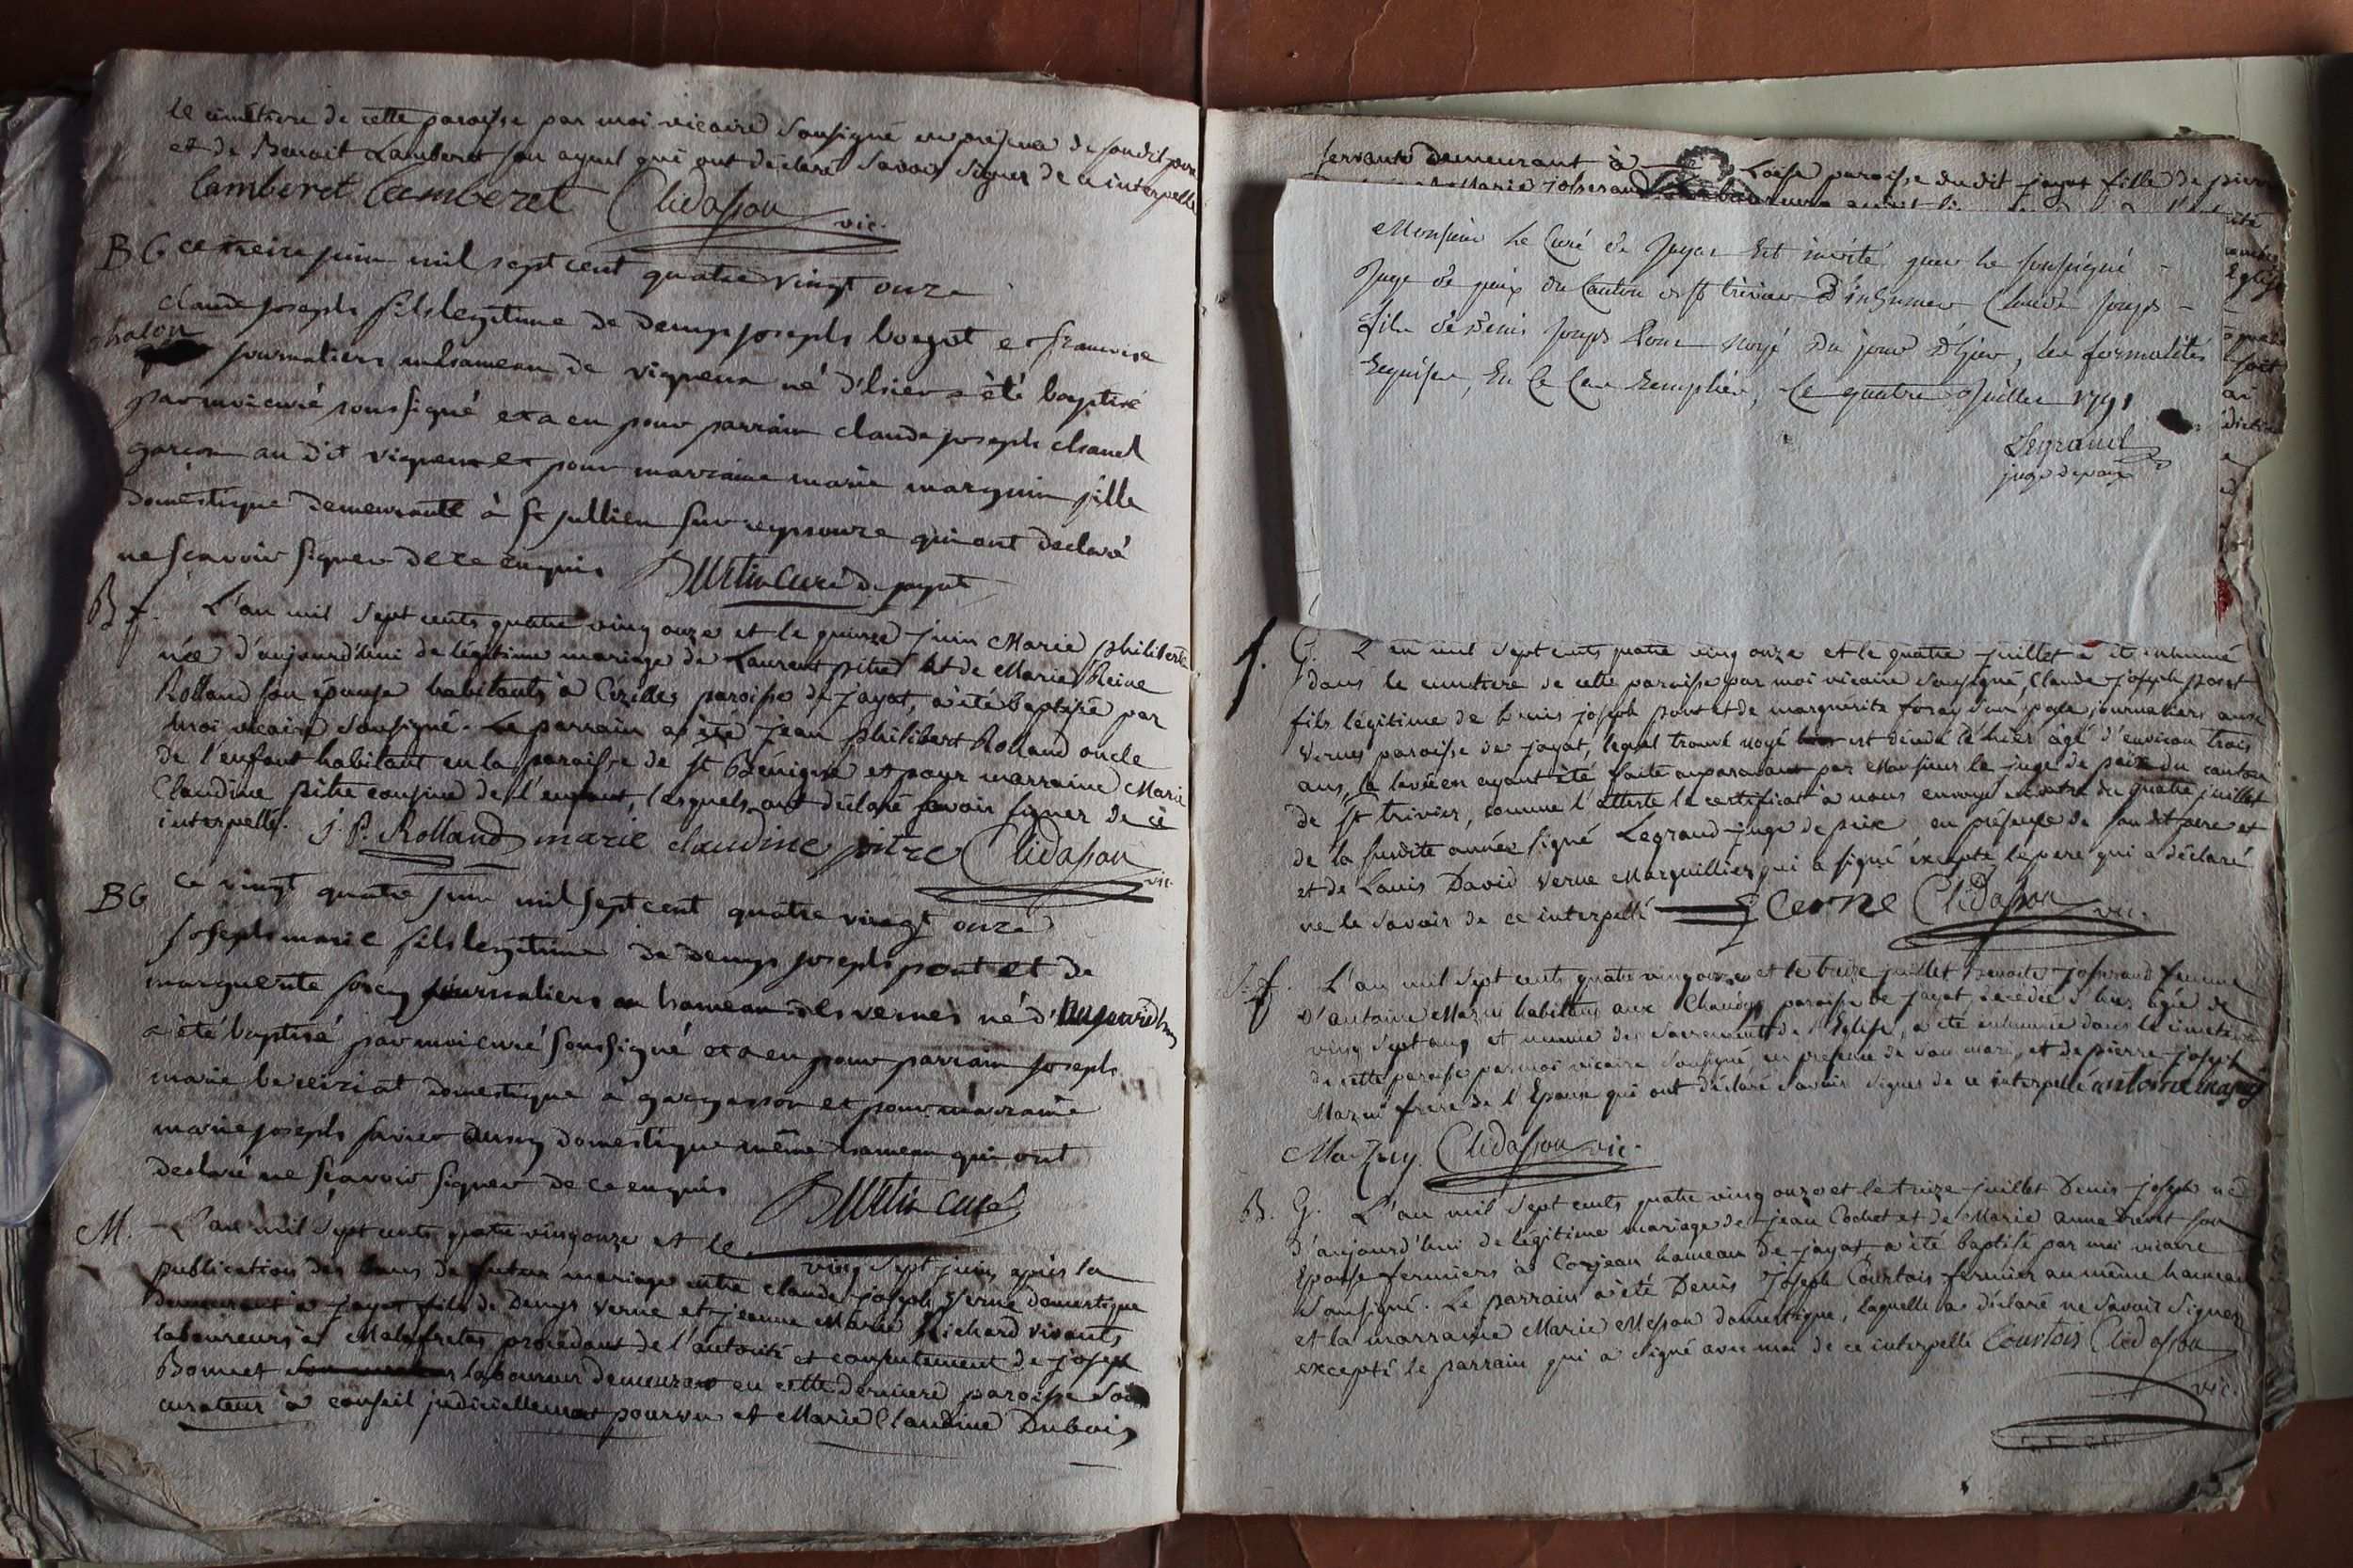 le cimetiere de cette paroisse par moi vicaire sousigné en présence de sondit pere
et de Benoit Lamberet son ayeul qui ont déclaré savoir signer de ce interpellé
Lamberet Lamberet Clidasson
vic.
BG ce treize juin mil sept cent quatre vingt onze
claude joseph fils legitime de denys joseph borgot et francoise
chalon
journaliers au hameau de vigneux né d'hier a été baptisé
par moi curé soussigné et a eu pour parrain claude joseph chanel
garcon au dit vigneux et pour marraine marie marguin fille
domestique demeurante à st jullien sur reyssouze qui ont declaré
ne sçavoir signer de ce enquis Burtin curé de jayat
B f. L'an mil sept cents quatre ving onze et le quinze juin Marie philiberte
née d'aujourd'hui de légitime mariage de Laurent pitre et de Marie Reine
Rolland son épouse habitants à Cézilles paroisse de jayat, a été baptisée par
moi vicaire sousigné. Le parrain a été jean philibert Rolland oncle
de l'enfant habitant en la paroisse de st Bénigne et pour marraine Marie
Claudine pitre cousine de l'enfant, lesquels ont déclaré savoir signer de ce
interpellé. J. P. Rolland marie claudine pitre Clidasson
vic.
BG ce vingt quatre juin mil sept cent quatre vingt onze
joseph marie fils legitime de denys joseph pont et de
marguerite forey journaliers au hameau des vernes né d'aujourd'huy
a été baptisé par moi curé soussigné et a eu pour parrain joseph
marie bereiziat domestique à et pour marraine
marie joseph domestique même hameau qui ont
declaré ne sçavoir signer de ce enquis Burtin curé
M. L'an mil sept cents quatre ving onze et le ving sept juin, après la
publication des bans de futur mariage entre claude joseph Verne domestique
demeurant à jayat fils de Denys Verne et jeanne Marie Richard vivants
laboureurs à Malafretas procédant de l'autorité et consentement de joseph
Bonnet laboureur demeurant en cette derniere paroisse son
curateur à conseil judiciellement pourvu et Marie Claudine Dubois
servante demeurant à Loise paroisse dudit jayat fille de pierre
Marie josserand
Monsieur Le Curé de Jayat Est invité par Le soussigné
Juge de paix du Canton de st trivier D'inhumer Claude Joseph
fils de Denis Joseph Pont Noyé Du jour D'hier, les formalités
Requises, En Ce Cas Remplies, Ce quatre Juillet 1791
Legrand
juge de paix
S. G. L'an mil sept cents quatre ving onze et le quatre juillet a été inhumé
dans le cimetiere de cette paroisse par moi vicaire sousigné, Claude joseph pont
fils légitime de Denis joseph pont et de marguérite foray son épouse journaliers aux
Vernes paroisse de jayat, lequel trouvé noyé est décédé d'hier âgé d'environ trois
ans, la levée en ayant été faite auparavant par Monsieur le juge de paix du canton
de st trivier, comme l'atteste le certificat à nous envoyé en datte du quatre juillet
de la susdite année signé Legrand juge de paix en présence de son dit pere et
et de Louis David Verne Marguillier qui a signé excepté le pere qui a déclaré
ne le savoir de ce interpellé L Verne Clidasson vic.
S. f. L'an mil sept cents quatre ving onze et le treize juillet Benoite josserand femme
d'antoine Mazuy habitans aux Chanées paroisse de jayat, décédée d'hier âgée de
ving sept ans et munie des sacrements de l'Eglise, a été inhumée dans le cimetiere
de cette paroisse par moi vicaire sousigné en présence de son mari, et de pierre joseph
Mazui frere de l'Epoux qui ont déclaré savoir signer de ce interpellé antoine mazuy
Mazuy. Clidasson vic.
B. G. L'an mil sept cents quatre ving onze et le treize juillet Denis joseph né
d'aujourd'hui de légitime mariage de jean Cochet et de Marie anne son
Epouse fermiers à Conjean hameau de jayat, a été baptisé par moi vicaire
sousigné. Le parrain a été Denis joseph Courtois fermier au même hameau
et la marraine Marie Messon domestique, laquelle a déclaré ne savoir signer
excepté le parrain qui a signé avec moi de ce interpellé Courtois Clidasson
vic.